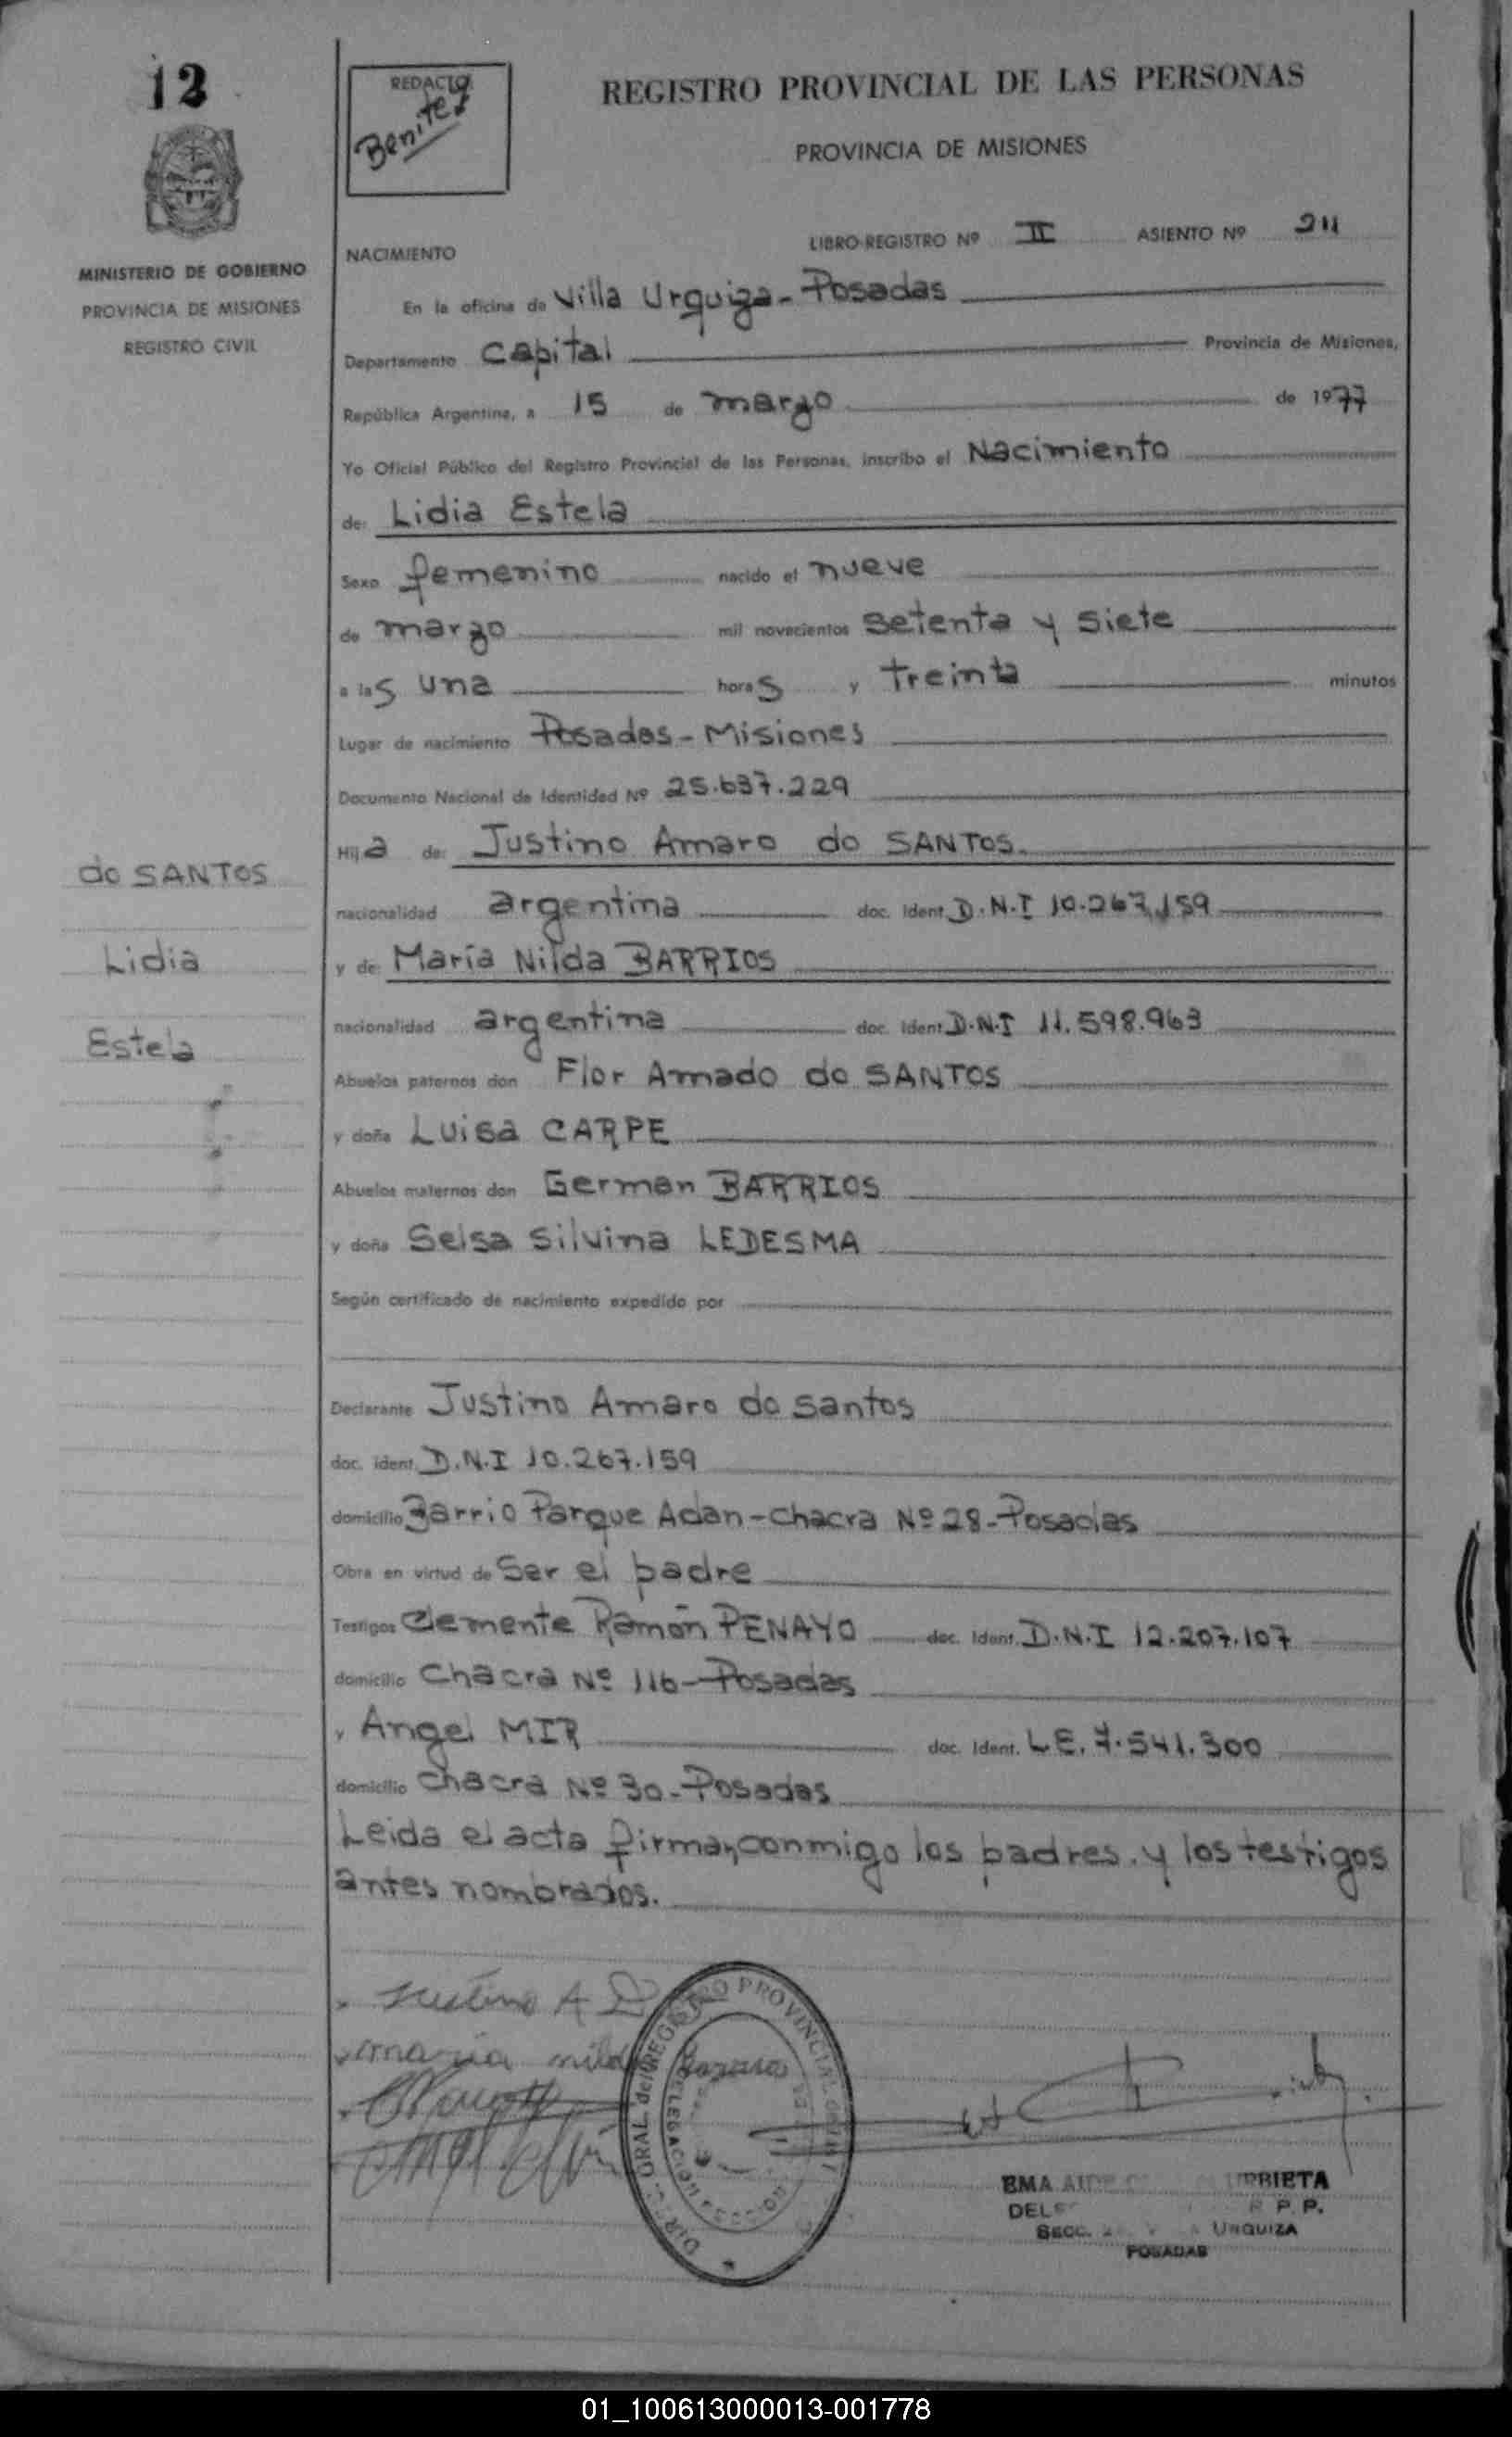 12
REDACTO
Benitez
REGISTRO PROVINCIAL DE LAS PERSONAS
PROVINCIA DE MISIONES
MINISTERIO DE GOBIERNO
PROVINCIA DE MISIONES
REGISTRO CIVIL
NACIMIENTO LIBRO-REGISTRO Nº II ASIENTO Nº 211
En la oficina de Villa Urquiza - Posadas
Departamento Capital Provincia de Misiones,
República Argentina, a 15 de marzo de 1977
Yo Oficial Público del Registro Provincial de las Personas, inscribo el Nacimiento
de: Lidia Estela
Sexo femenino nacido el nueve
de marzo mil novecientos setenta y siete
a las una horas y treinta minutos
Lugar de nacimiento Posadas - Misiones
Documento Nacional de Identidad Nº 25.637.229
Hija de: Justino Amaro do SANTOS.
do SANTOS
Lidia
Estela
nacionalidad argentina doc. Ident. D.N.I 10.267.159
y de: María Nilda BARRIOS
nacionalidad argentina doc. Ident. D.N.I 11.598.963
Abuelos paternos don Flor Amado do SANTOS
y doña Luisa CARPE
Abuelos maternos don German BARRIOS
y doña Selsa Silvina LEDESMA
Según certificado de nacimiento expedido por
Declarante Justino Amaro do Santos
doc. ident. D.N.I 10.267.159
domicilio Barrio Parque Adan - Chacra Nº 28 - Posadas
Obra en virtud de ser el padre
Testigos Clemente Ramón PENAYO doc. Ident. D.N.I 12.207.107
domicilio Chacra Nº 116 - Posadas
y Angel MIR doc. Ident. L.E. 7.541.300
domicilio Chacra Nº 30 - Posadas
Leida el acta firman conmigo los padres y los testigos
antes nombrados.
Justino A D
maria nilda Barrios
REGISTRO PROVINCIAL
EMA URRIETA
R. P. P.
SECC. URQUIZA
POSADAS
01_100613000013-001778